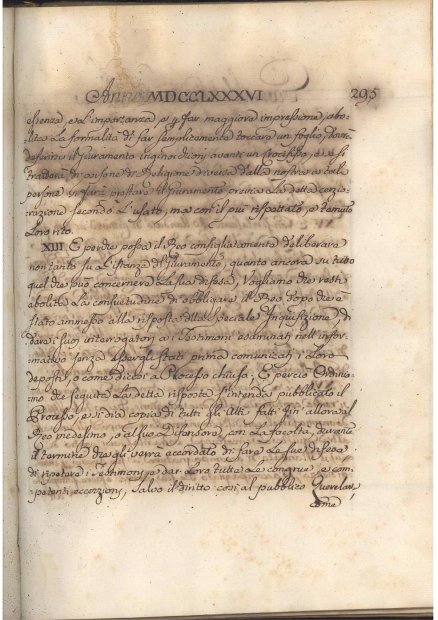 Anno MDCCLXXXVI 295
essenza, e al importanza e p far maggiore impressione, abo-
lita La formalità di far semplicemente toccare un foglio, dovrà
deferirsi il Giuramento inginocchioni avanti un Crocifisso, e se si
tratterà di persone di Religione diversa dalla nostra a tali
persone si farà prestare il Giuramento previa La detta
secondo L'usato, ma con il più rispettato, e temuto
Loro rito.
XIII E perche possa il Reo consigliatamente deliberare
non tanto su L'istanza di Giuramento, quanto ancora su tutto
quel che può concernere La sua difesa, Vogliamo che resti
abolita La consuetudine di obbligare il Reo dopo che è
stato ammesso alla risposta della speciale Inquisizione di
dare i suoi interrogatorj a Testimoni esaminati nell'infor-
mativo senza che gli stati prima comunicati i Loro
deposti, o come dicesi a Processo chiuso, E perciò Ordinia-
mo che seguita La detta risposta s'intenda pubblicato il
Processo, e si dia copia di tutti gli Atti fatti fin allora al
Reo medesimo, o al suo Difensore, con La facoltà, durante
il termine che gli verrà accordato di fare Le sue difese
di ripetere i Testimonj, e dar Loro tutte Le congrue, e com-
petenti eccezioni, Salvo il diritto così al pubblico Querelante
come